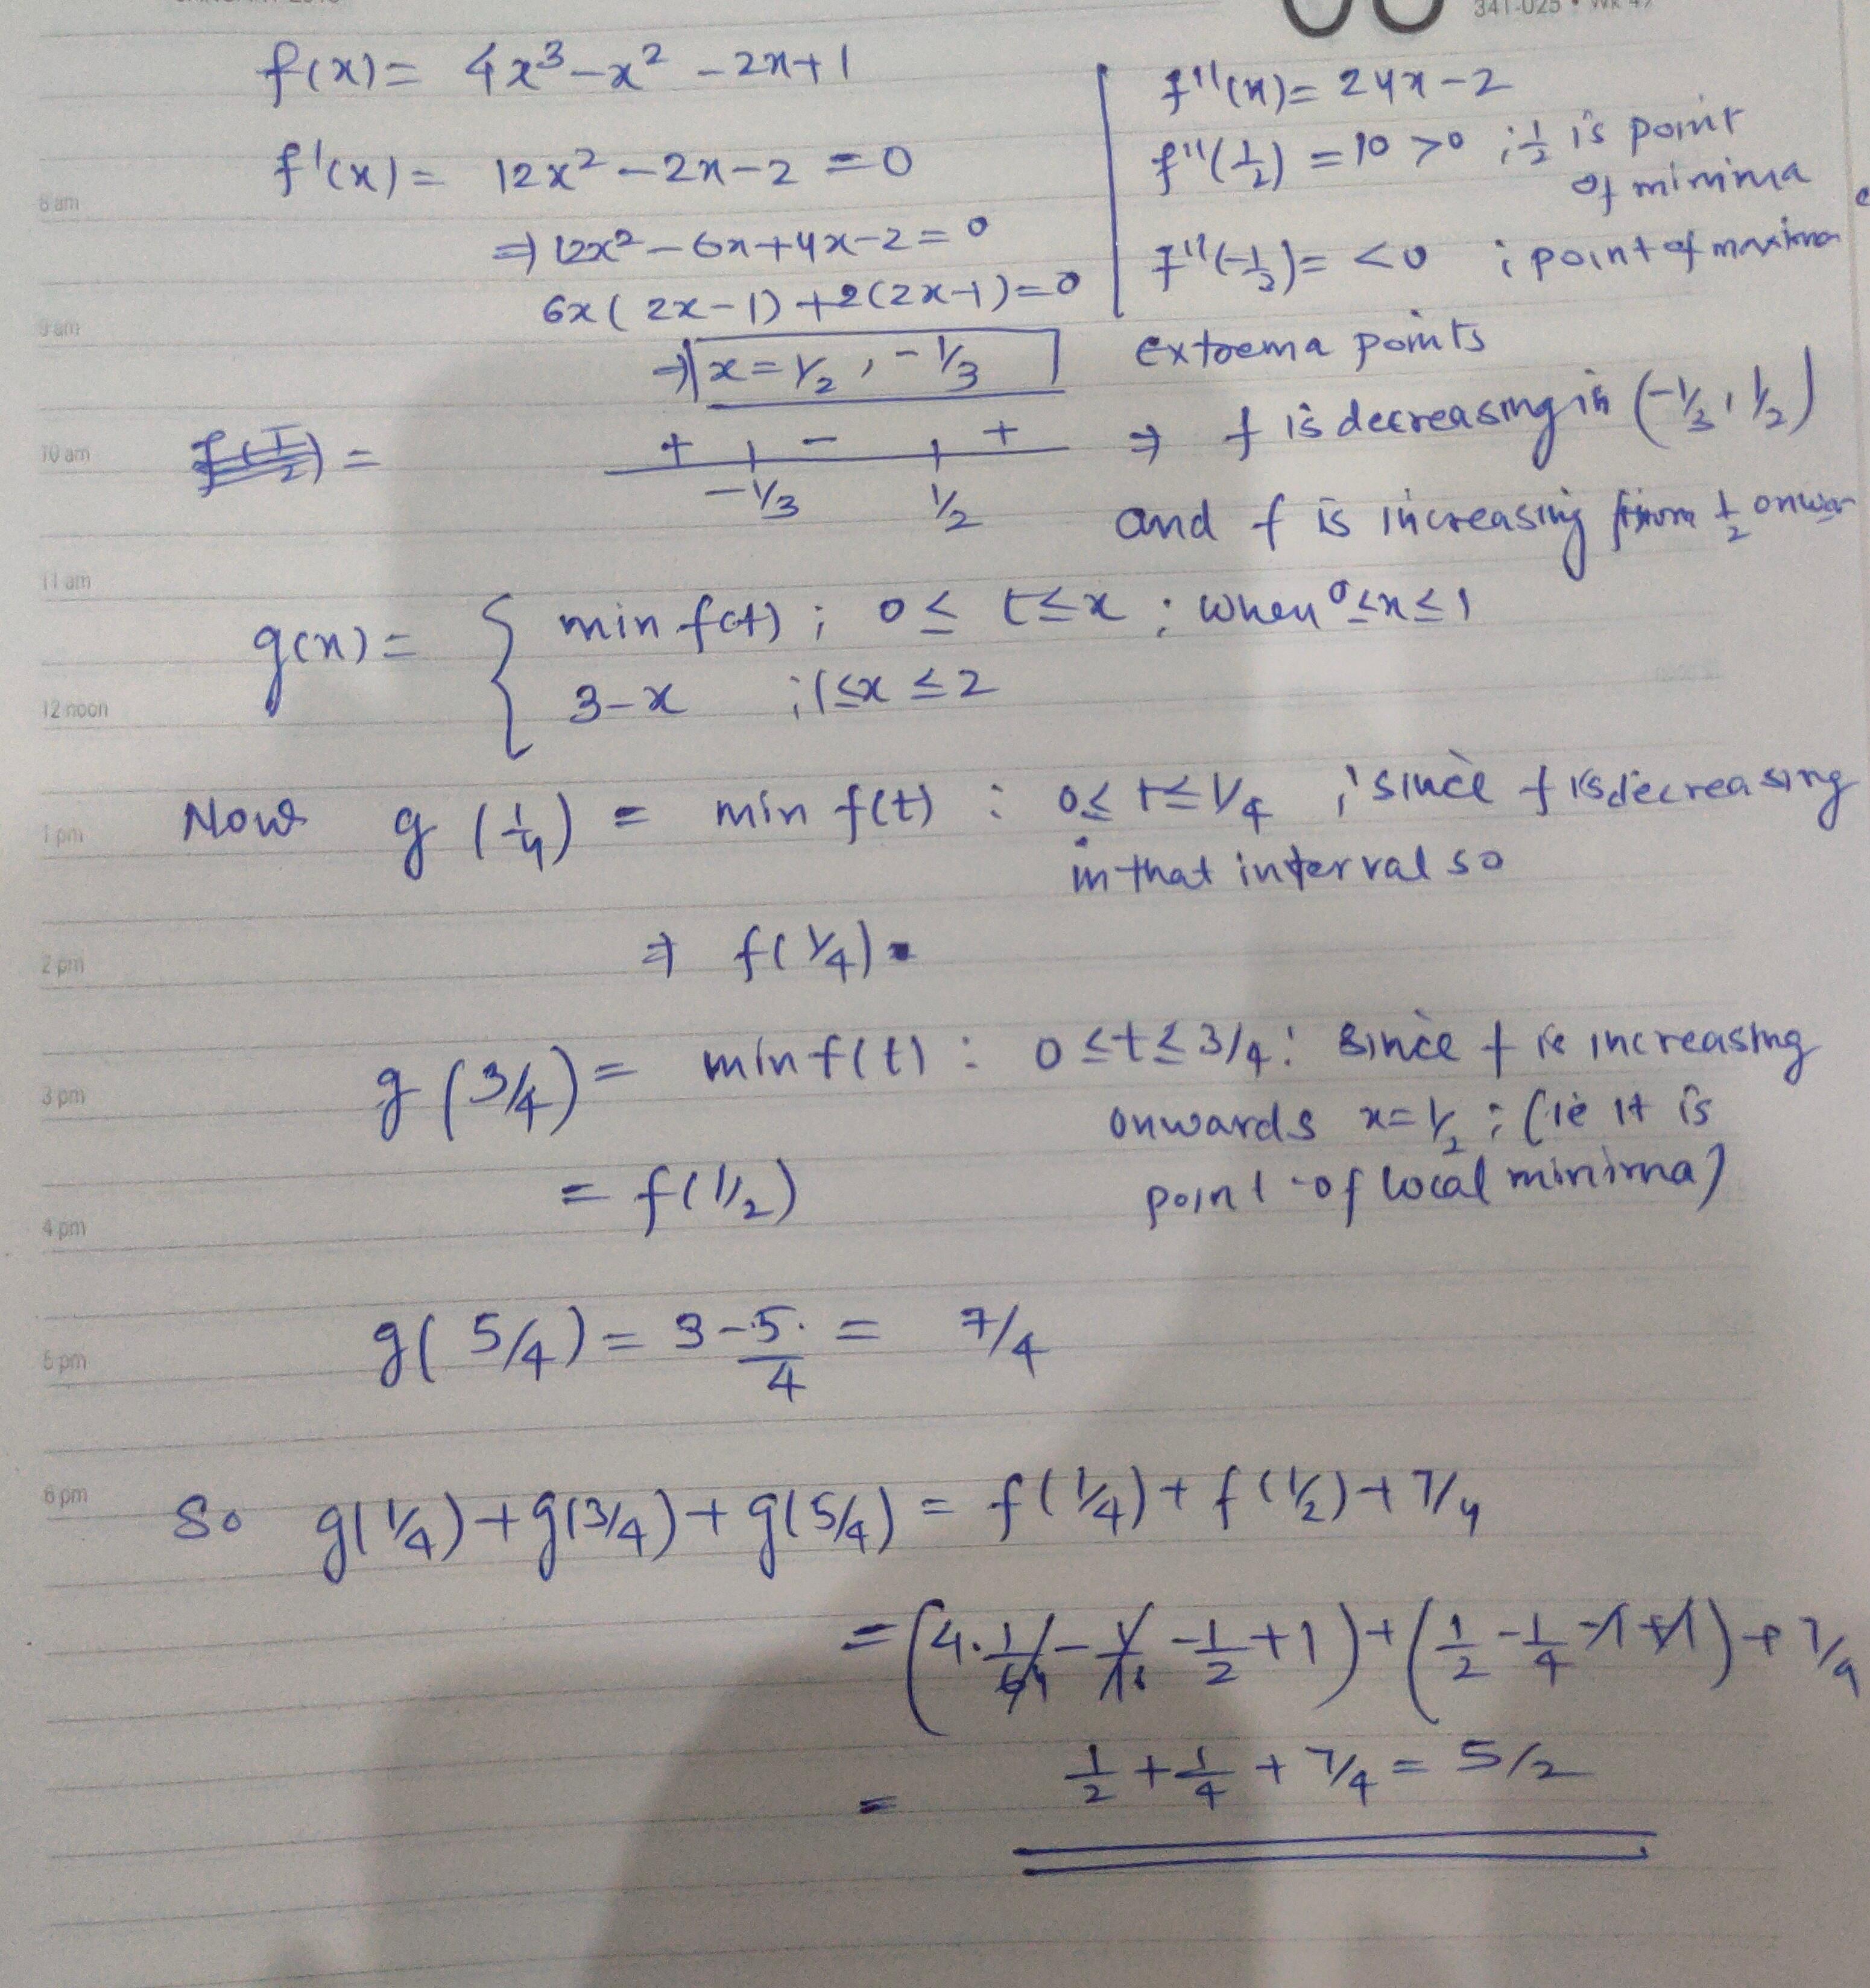 341-025 • Wk 49
f(x) = 4x³ – x² – 2x + 1
f'(x) = 12x² – 2x – 2 = 0
⇒ 12x² – 6x + 4x – 2 = 0
6x(2x – 1) + 2(2x – 1) = 0
⇒ x = 1/2, –1/3
f''(x) = 24x – 2
f''(1/2) = 10 > 0 ; 1/2 is point
of minima
f''(–1/3) = < 0 ; point of maxima
extrema points
f(1/2) =
+ – +
–1/3 1/2
⇒ f is decreasing in (–1/3, 1/2)
and f is increasing from 1/2 onwar
g(x) = { min f(t) ; 0 ≤ t ≤ x ; when 0 ≤ x ≤ 1
3 – x ; 1 ≤ x ≤ 2
Now g(1/4) = min f(t) : 0 ≤ t ≤ 1/4 ; since f is decreasing
in that interval so
⇒ f(1/4)
g(3/4) = min f(t) : 0 ≤ t ≤ 3/4 : since f is increasing
onwards x = 1/2 ; (ie it is
= f(1/2)
point of local minima)
g(5/4) = 3 – 5/4 = 7/4
So g(1/4) + g(3/4) + g(5/4) = f(1/4) + f(1/2) + 7/4
= (4·1/64 – 1/16 – 1/2 + 1) + (1/2 – 1/4 – 1 + 1) + 7/4
= 1/2 + 1/4 + 7/4 = 5/2
8 am
9 am
10 am
11 am
12 noon
1 pm
2 pm
3 pm
4 pm
5 pm
6 pm